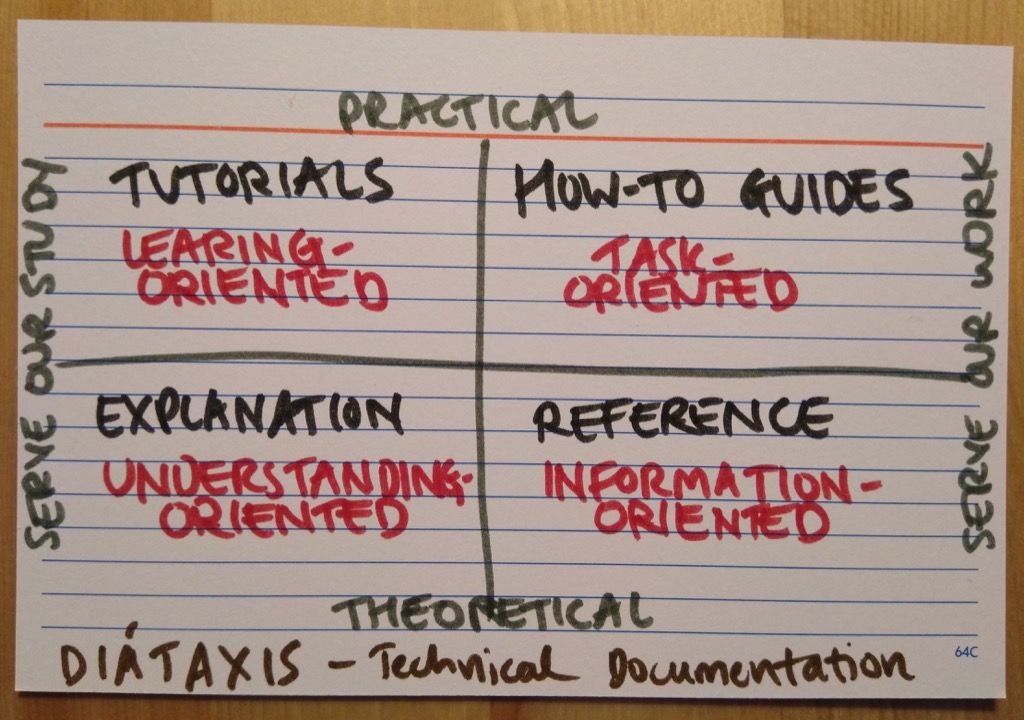 PRACTICAL
SERVE OUR STUDY
TUTORIALS
LEARING-
ORIENTED
HOW-TO GUIDES
TASK-
ORIENTED
SERVE OUR WORK
EXPLANATION
UNDERSTANDING-
ORIENTED
REFERENCE
INFORMATION-
ORIENTED
THEORETICAL
DIÁTAXIS - Technical Documentation
64C